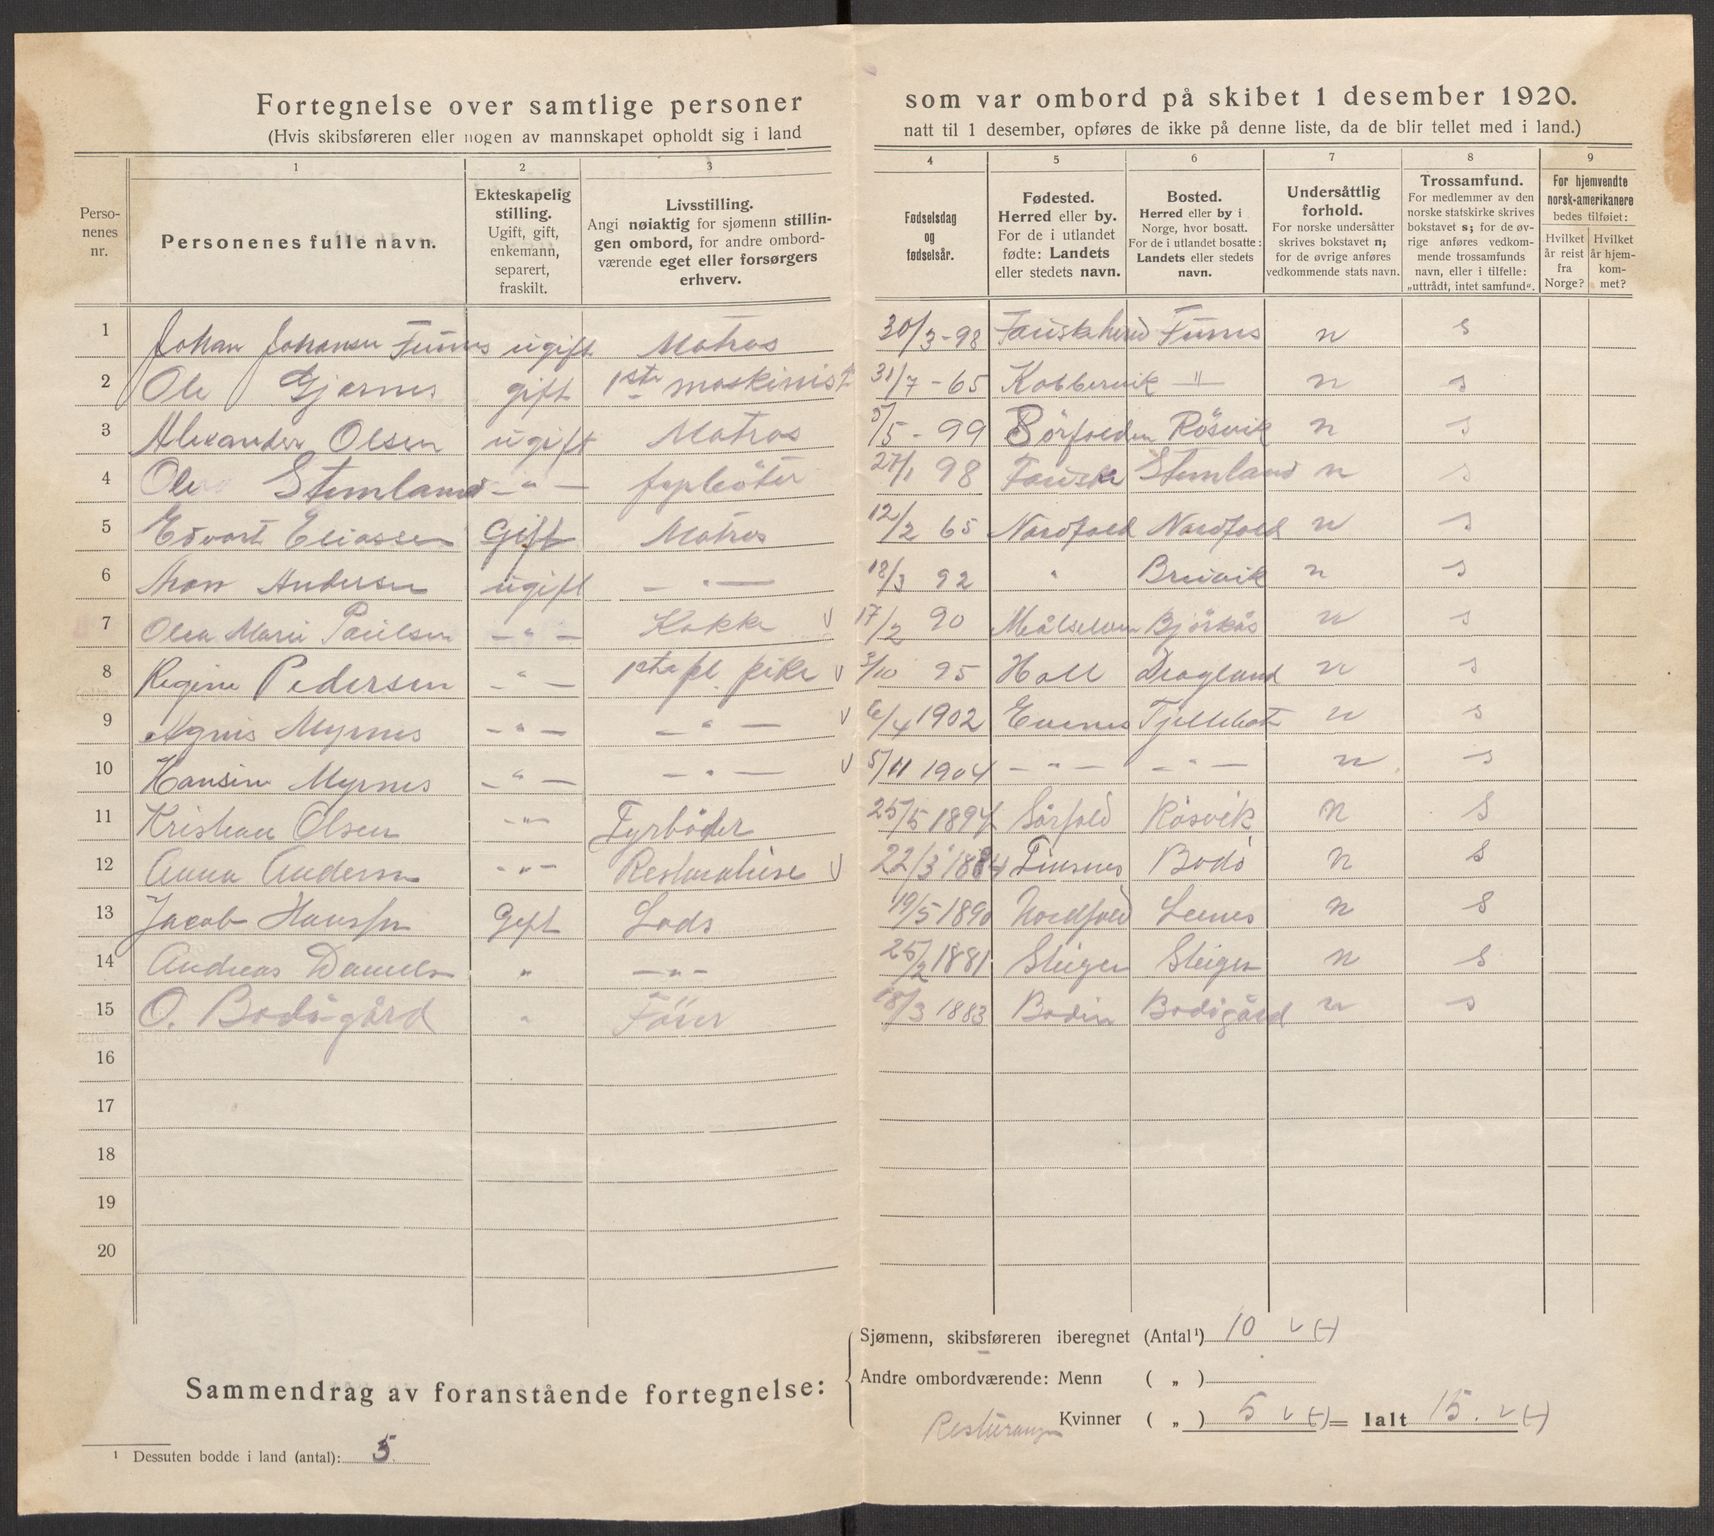 Fortegnelse over samtlige personer som var ombord på skibet 1 desember 1920.
(Hvis skibsføreren eller nogen av mannskapet opholdt sig i land natt til 1 desember, opføres de ikke på denne liste, da de blir tellet med i land.)
1 2 3 4 5 6 7 8 9
Personenes nr.
Personenes fulle navn.
Ekteskapelig stilling. Ugift, gift, enkemann, separert, fraskilt.
Livsstilling. Angi nøiaktig for sjømenn stillingen ombord, for andre ombordværende eget eller forsørgers erhverv.
Fødselsdag og fødselsår.
Fødested. Herred eller by. For de i utlandet fødte: Landets eller stedets navn.
Bosted. Herred eller by i Norge, hvor bosatt. For de i utlandet bosatte: Landets eller stedets navn.
Undersåttlig forhold. For norske undersåtter skrives bokstavet n; for de øvrige anføres vedkommende stats navn.
Trossamfund. For medlemmer av den norske statskirke skrives bokstavet s; for de øvrige anføres vedkommende trossamfunds navn, eller i tilfelle: „uttrådt, intet samfund“.
For hjemvendte norsk-amerikanere bedes tilføiet: Hvilket år reist fra Norge? Hvilket år hjemkommet?
1 Johan Johansen Funnes ugift Matros 30/3-98 Fauskherred Funnes n s
2 Ole Gjærnes gift 1ste maskinist 31/7-65 Kobbervik " n s
3 Alexander Olsen ugift Matros 5/5-99 Sörfolden Rösvik n s
4 Olav Stemland -"- fyrböter 27/1 98 Fauske Stemland n s
5 Edvart Eliassen Gift Matros 12/2 65 Nordfold Nordfold n s
6 Andersen ugift -"- 18/3 92 " Bruvik n s
7 Olea Marie Paulsen -"- Kokke v 17/2 90 Målselven Björkås n s
8 Regine Pedersen -"- 1ste pl. pike v 3/10 95 Holl Dragland n s
9 Agnis Myrnes -"- -"- v 6/4 1902 Evenes Tjellebotn n s
10 Hansine Myrnes -"- -"- v 5/11 1904 -"- -"- n s
11 Kristian Olsen -"- Fyrböder 25/5 1894 Sörfold Rösvik n s
12 Anna Andersen -"- Restauratrise v 22/3 1884 Finsnes Bodö n s
13 Jacob Hanssen Gift Lods 19/5 1890 Nordfold Leines n s
14 Andreas Daniels " -"- 25/2 1881 Steigen Steigen n s
15 O. Bodögård " Förer 18/3 1883 Bodin Bodögård n s
16
17
18
19
20
Sammendrag av foranstående fortegnelse:
Sjømenn, skibsføreren iberegnet (Antal¹) 10 v (-)
Andre ombordværende: Menn ( „ )
Kvinner ( „ ) 5 v (-) = Ialt 15. v (-)
¹ Dessuten bodde i land (antal): 5.